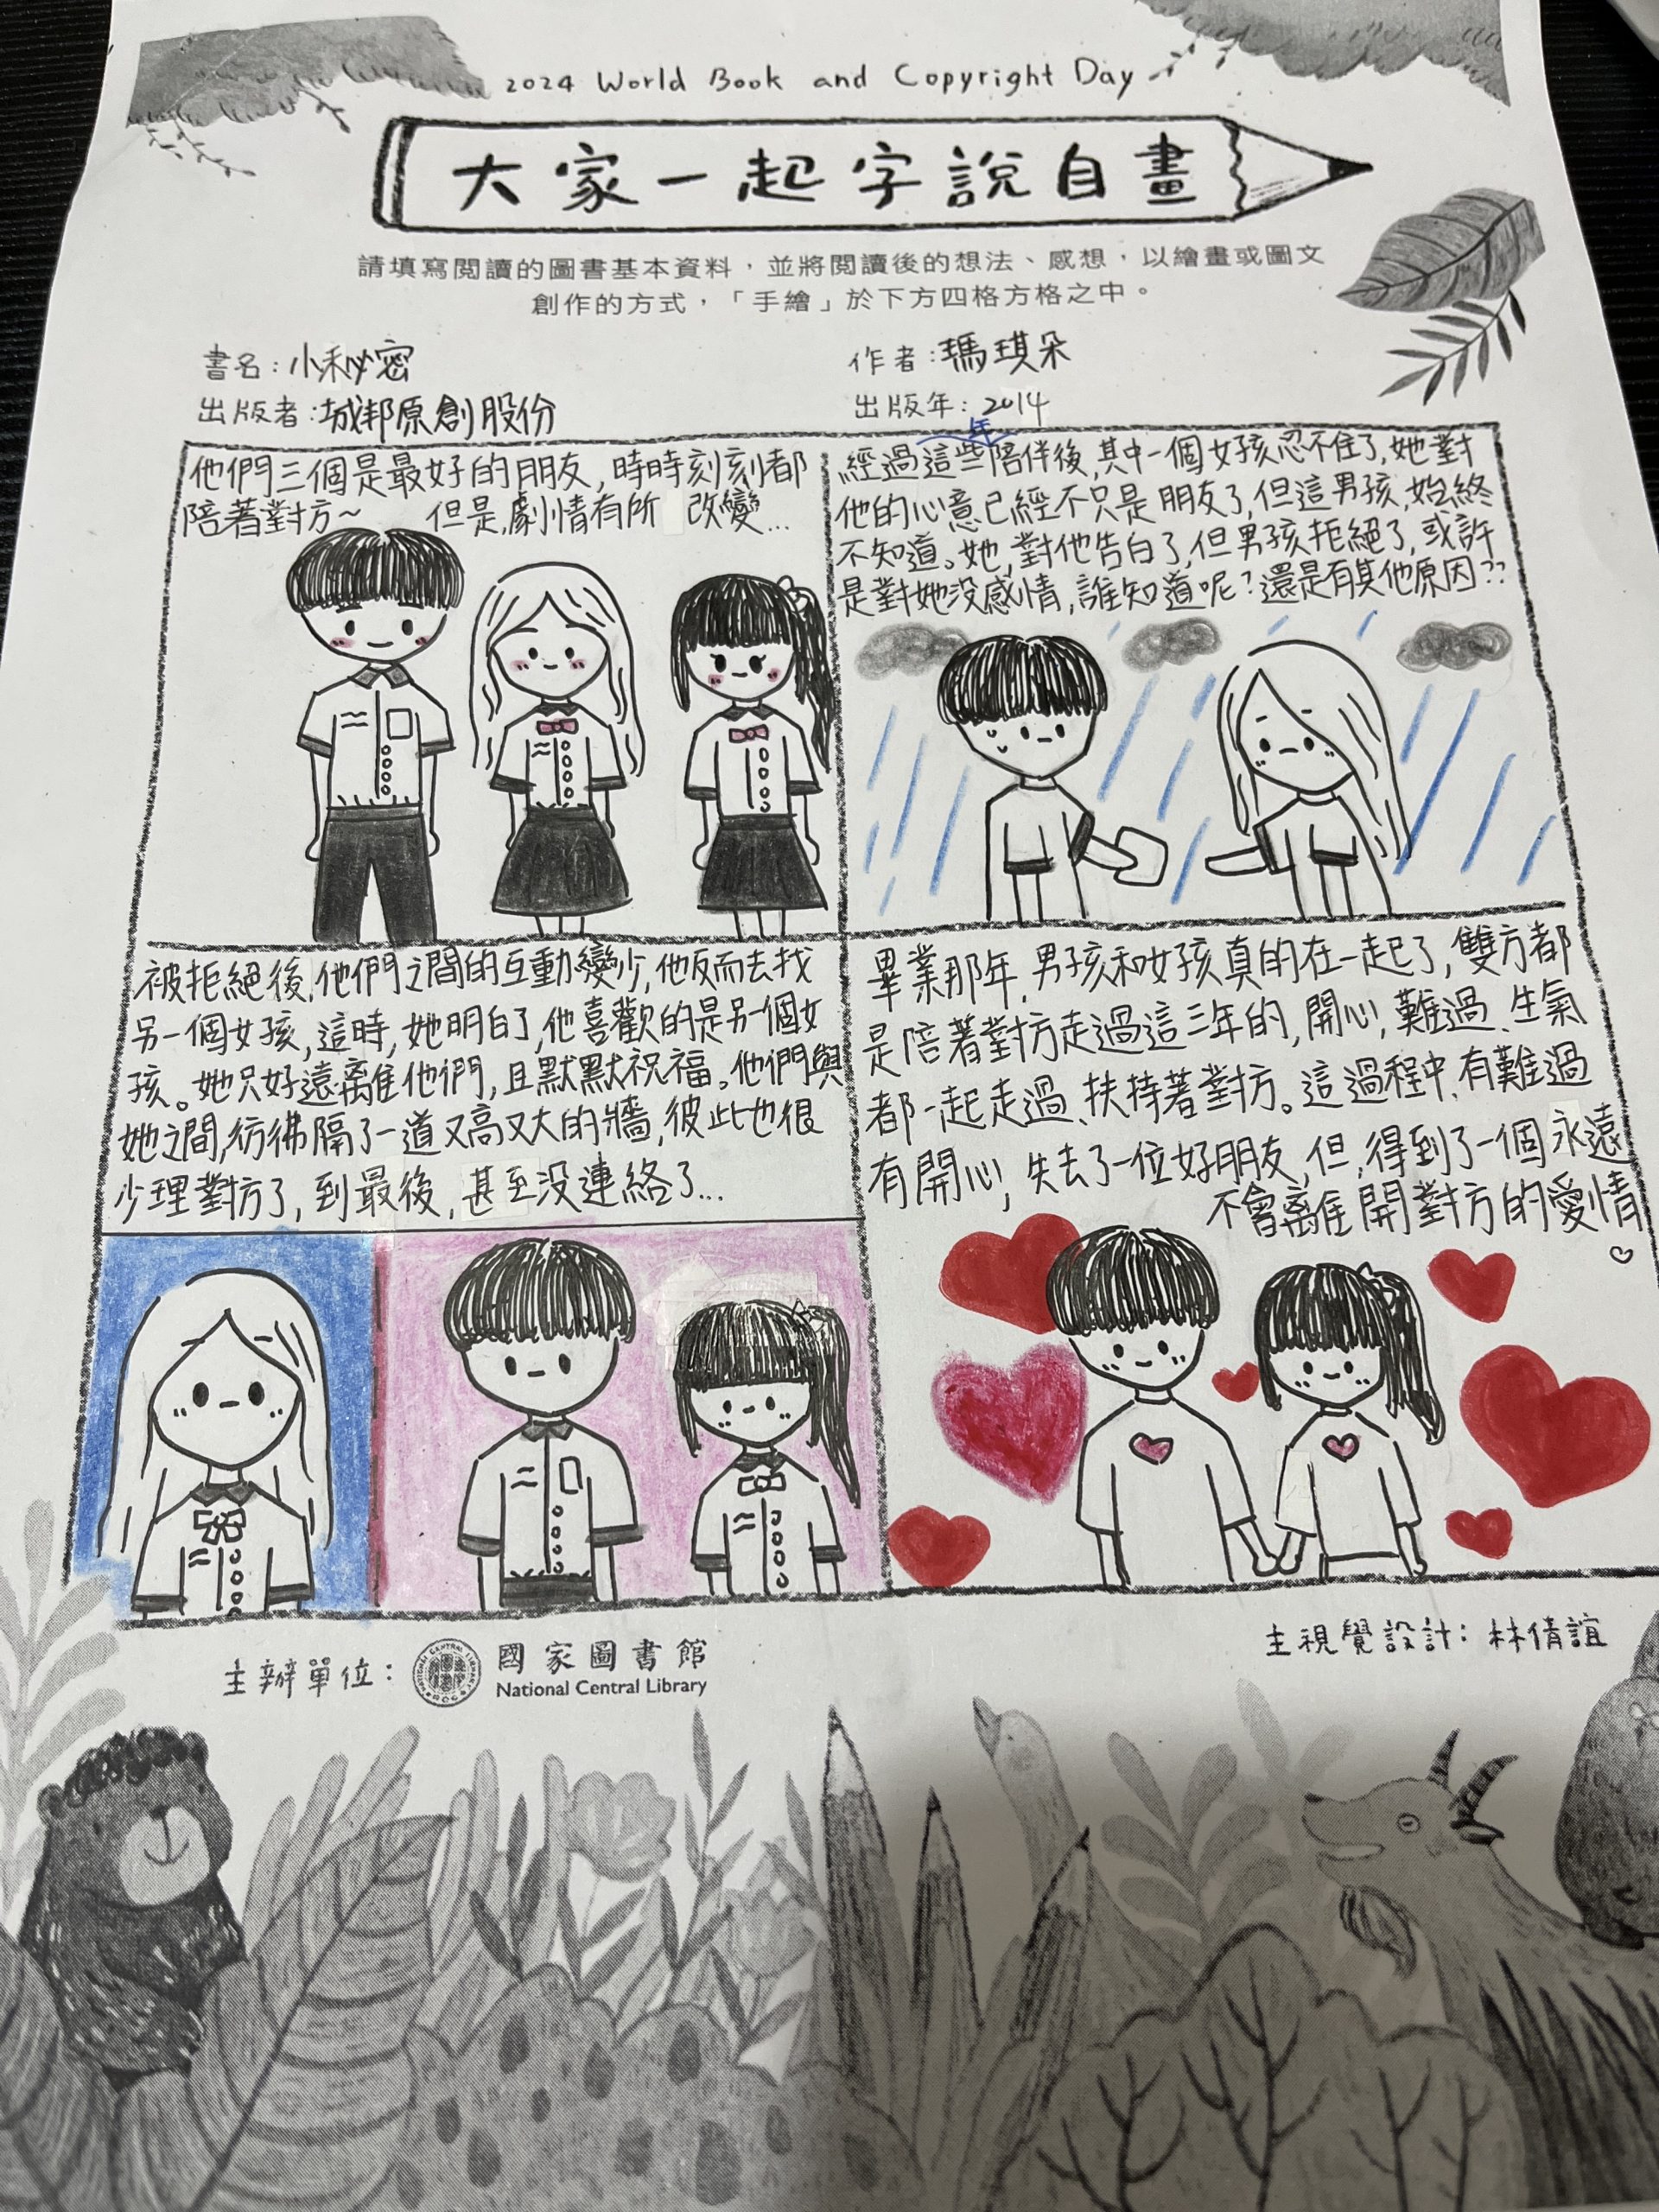 2024 World Book and Copyright Day
大家一起字說自畫
請填寫閱讀的圖書基本資料，並將閱讀後的想法、感想，以繪畫或圖文
創作的方式，「手繪」於下方四格方格之中。
書名：小秘密
作者：瑪琪朵
出版者：城邦原創股份
出版年：2014
他們三個是最好的朋友，時時刻刻都
陪著對方~ 但是，劇情有所改變...
年
經過這些陪伴後，其中一個女孩忍不住了，她對
他的心意已經不只是朋友了，但這男孩，始終
不知道。她，對他告白了，但男孩拒絕了，或許
是對她沒感情，誰知道呢？還是有其他原因??
被拒絕後，他們之間的互動變少，他反而去找
另一個女孩，這時，她明白了，他喜歡的是另一個女
孩。她只好遠離他們，且默默祝福。他們與
她之間，彷彿隔了一道又高又大的牆，彼此也很
少理對方了，到最後，甚至沒連絡了...
畢業那年，男孩和女孩真的在一起了，雙方都
是陪著對方走過這三年的，開心，難過、生氣
都一起走過、扶持著對方。這過程中，有難過
有開心，失去了一位好朋友，但，得到了一個永遠
不會離開對方的愛情
♡
主辦單位：
國家圖書館
National Central Library
主視覺設計：林倩誼